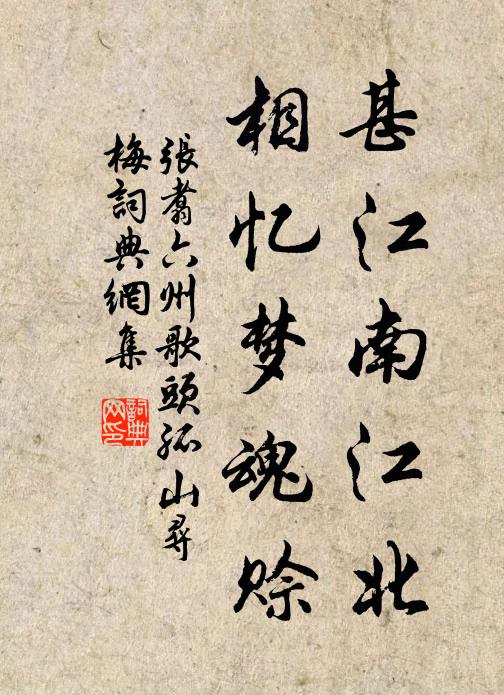 甚江南江北
相忆梦魂赊
張翥六州歌頭孤山尋
梅詞典網集
詞典
网印